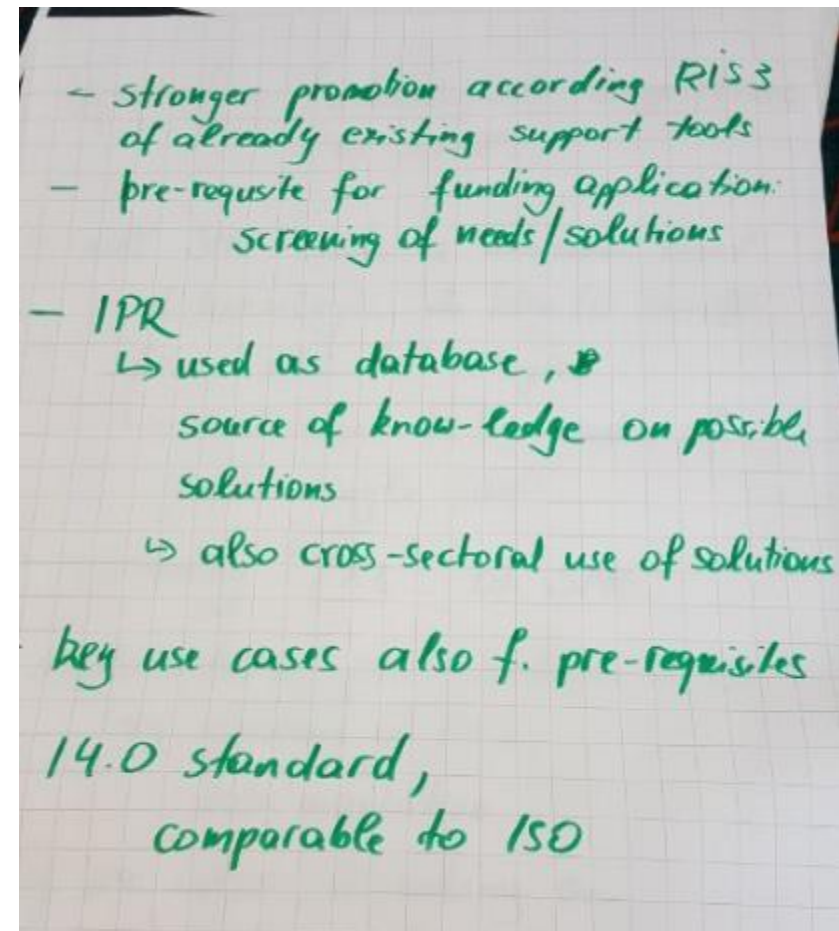 - stronger promotion according RIS3
of already existing support tools
- pre-requsite for funding application:
screening of needs/solutions
- IPR
↳ used as database,
source of know-ledge on possible
solutions
↳ also cross-sectoral use of solutions
key use cases also f. pre-requisites
I4.0 standard,
comparable to ISO